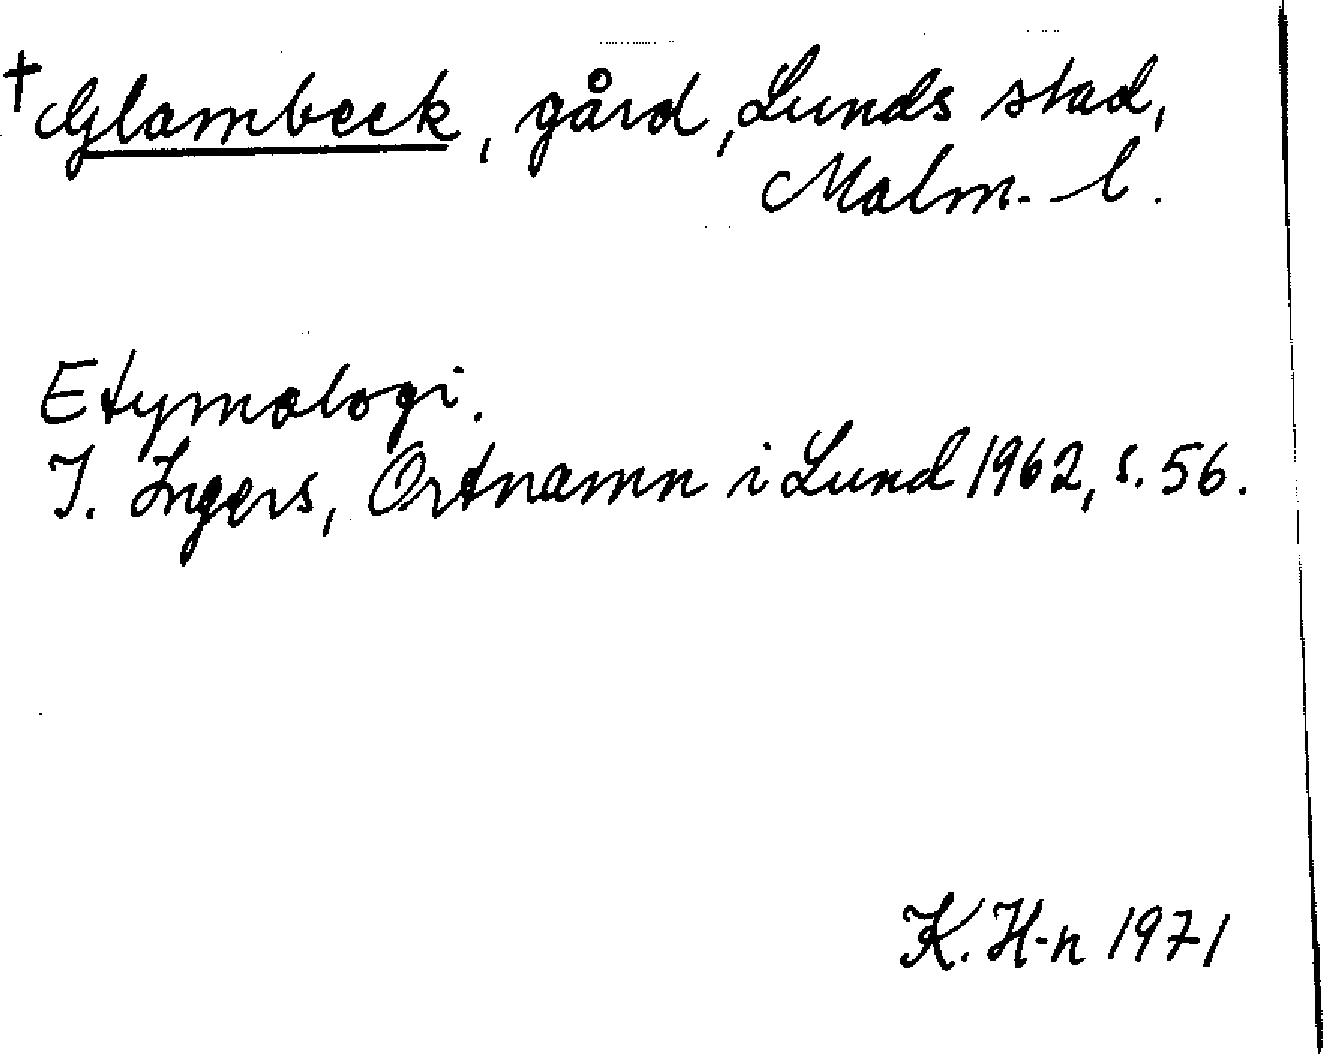 †Glambeck, gård, Lunds stad,
Malm. l.
Etymologi.
I. Ingers, Ortnamn i Lund 1962, s. 56.
K. H-n 1971